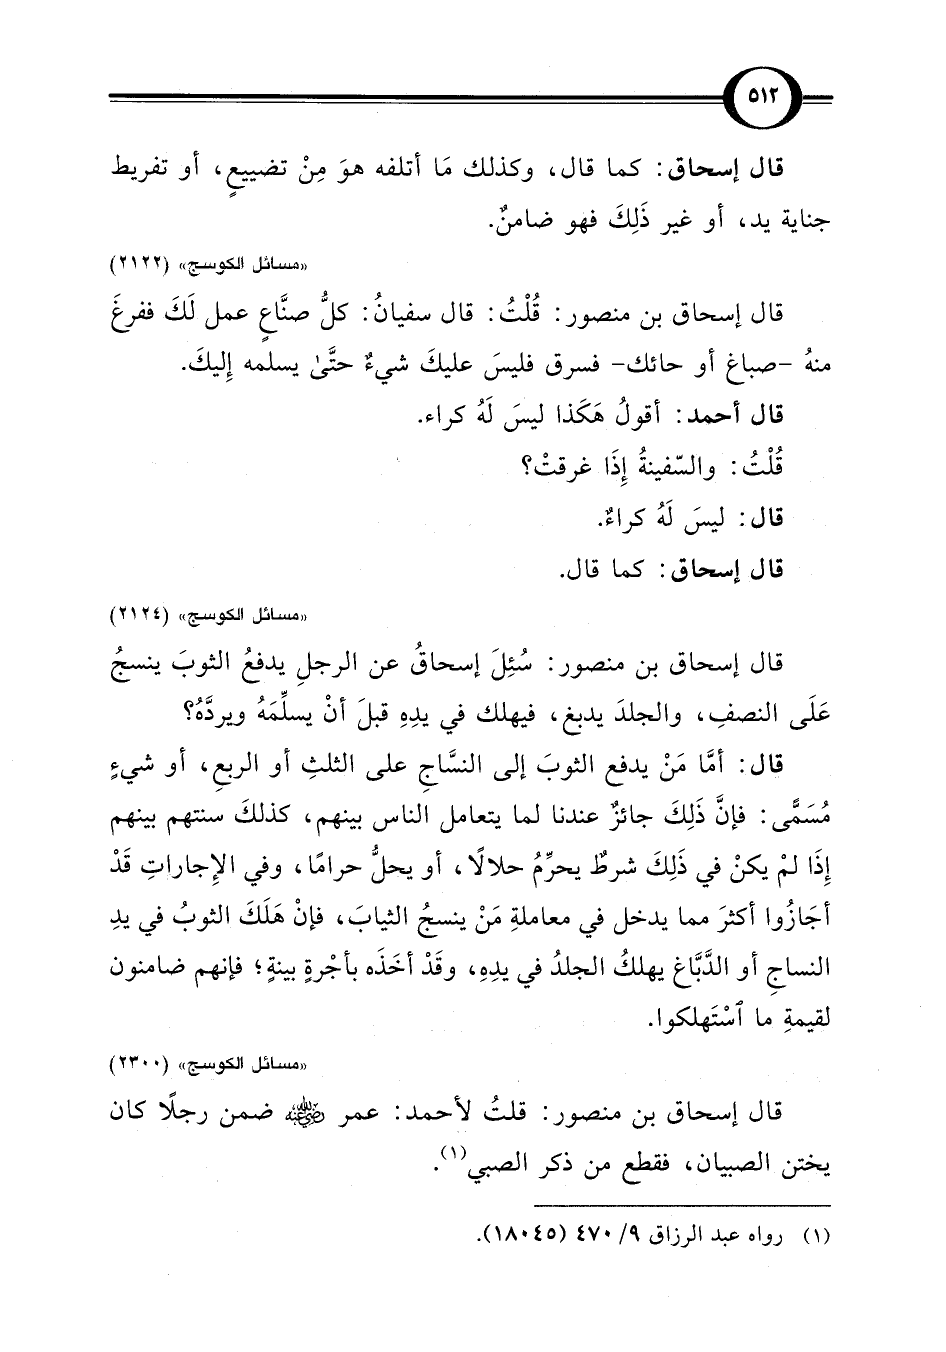 ٥١٢
قال إسحاق: كما قال، وكذلك مَا أتلفه هوَ مِنْ تضييعٍ، أو تفريط
جناية يد، أو غير ذَلِكَ فهو ضامنٌ.
«مسائل الكوسج» (٢١٢٢)
قال إسحاق بن منصور: قُلْتُ: قال سفيانُ: كلُّ صنَّاعٍ عمل لَكَ ففرغَ
منهُ -صباغ أو حائك- فسرق فليسَ عليكَ شيءٌ حتَّىٰ يسلمه إليكَ.
قال أحمد: أقولُ هَكَذا ليسَ لَهُ كراء.
قُلْتُ: والسّفينةُ إذَا غرقتْ؟
قال: ليسَ لَهُ كراءٌ.
قال إسحاق: كما قال.
«مسائل الكوسج» (٢١٢٤)
قال إسحاق بن منصور: سُئِلَ إسحاقُ عن الرجلِ يدفعُ الثوبَ ينسجُ
عَلَى النصفِ، والجلدَ يدبغ، فيهلك في يدِهِ قبلَ أنْ يسلِّمَهُ ويردَّهُ؟
قال: أمَّا مَنْ يدفع الثوبَ إلى النسَّاجِ على الثلثِ أو الربعِ، أو شيءٍ
مُسَمًّى: فإنَّ ذَلِكَ جائزٌ عندنا لما يتعامل الناس بينهم، كذلكَ سنتهم بينهم
إذَا لمْ يكنْ في ذَلِكَ شرطٌ يحرِّمُ حلالًا، أو يحلُّ حرامًا، وفي الإجاراتِ قَدْ
أجَازُوا أكثرَ مما يدخل في معاملةِ مَنْ ينسجُ الثيابَ، فإنْ هَلَكَ الثوبُ في يدِ
النساجِ أو الدَّبَّاغِ يهلكُ الجلدُ في يدِهِ، وقَدْ أخَذَه بأجْرةٍ بينةٍ؛ فإنهم ضامنون
لقيمةِ ما ٱسْتَهلكوا.
«مسائل الكوسج» (٢٣٠٠)
قال إسحاق بن منصور: قلتُ لأحمد: عمر رضي الله عنه ضمن رجلًا كان
يختن الصبيان، فقطع من ذكر الصبي(١).
(١) رواه عبد الرزاق ٩/ ٤٧٠ (١٨٠٤٥).